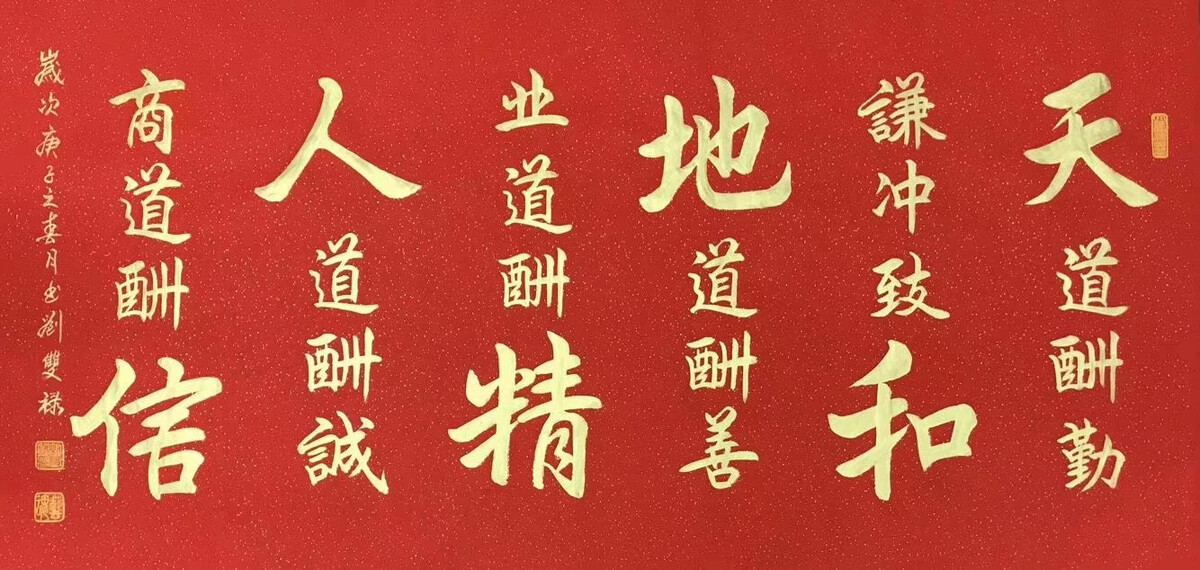 天道酬勤
謙冲致和
地道酬善
业道酬精
人道酬誠
商道酬信
歲次庚子之春月书劉雙禄